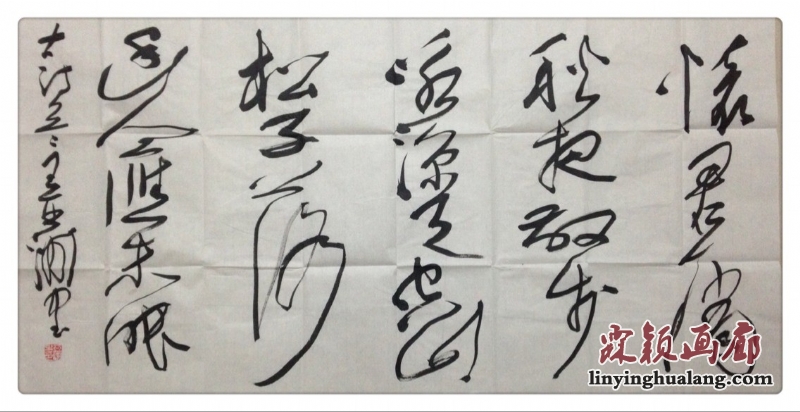 懷君屬
秋夜散步
咏涼天空山
松子落
幽人應未眠
古诗
霖颖画廊
linyinghualang.com